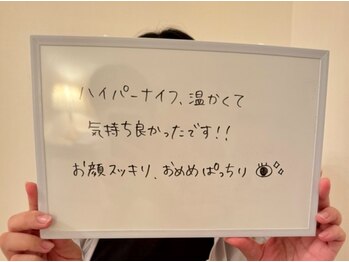 ハイパーナイフ、温かくて
気持ち良かったです!!
お顔スッキリ、おめめぱっちり